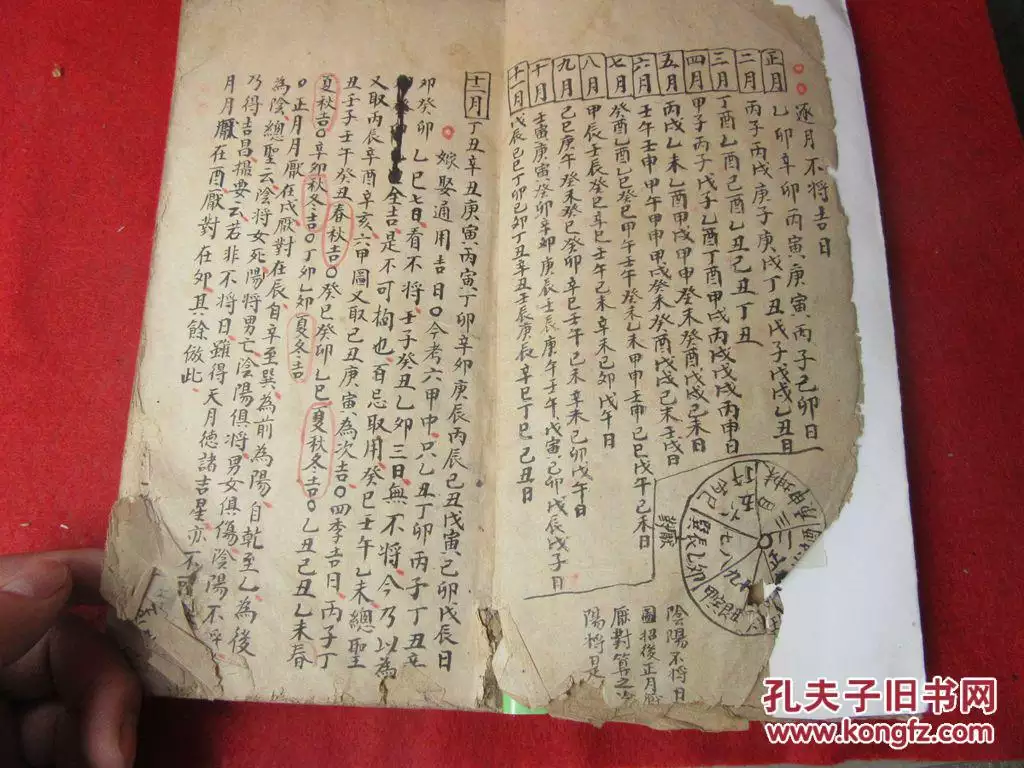 逐月不将吉日
正月 乙卯辛卯丙寅庚寅丙子己卯日
二月 丙子丙戌庚子庚戌丁丑戊子戊戌乙丑日
三月 丁酉乙酉己酉乙丑己丑丁丑
四月 甲子丙子戊子乙酉丁酉甲戌丙戌戊戌丙申日
五月 丙戌乙未乙酉甲戌甲申癸未癸酉戊戌己未日
六月 壬午壬申甲午甲申甲戌癸未癸酉戊戌己未壬戌日
七月 癸酉乙酉乙巳癸巳甲午壬午癸未乙未甲申壬申己巳戊午己未日
八月 甲辰壬辰癸巳辛巳壬午己未辛未己卯戊午日
九月 己巳庚午癸未癸巳癸卯辛巳壬午己未辛未己卯戊午日
十月 壬寅庚寅癸卯辛卯庚辰壬辰庚午壬午戊寅己卯戊辰戊子日
十一月 戊辰己巳丁卯己卯丁丑辛丑壬辰庚辰辛巳丁巳己丑日
厭對
陰陽不将日
圖招後正月
厭對算之
陽将是
十二月 丁丑辛丑庚寅丙寅丁卯辛卯庚辰丙辰己丑戊寅己卯戊辰日
嫁娶通用吉日〇今考六甲中只乙丑丁卯丙子丁丑辛
卯癸卯乙巳七日看不将壬子癸丑乙卯三日無不将今乃以為
全吉是不可拘也百忌取用癸巳壬午乙未總聖
又取丙辰辛酉辛亥六甲圖又取己丑庚寅為次吉〇四季吉日丙子丁
丑壬子壬午癸丑春秋吉〇癸巳癸卯乙巳夏秋冬吉〇乙丑己丑乙未春
夏秋吉〇辛卯秋冬吉〇丁卯乙卯夏冬吉
〇正月月厭在戌厭對在辰自辛至巽為前為陽自乾至乙為後
為陰總聖云陰将女死陽将男亡陰陽俱将男女俱傷陰陽不
乃得吉昌撮要云若非不将日雖得天月德諸吉星亦不
月月厭在酉厭對在卯其餘倣此
孔夫子旧书网
www.kongfz.com